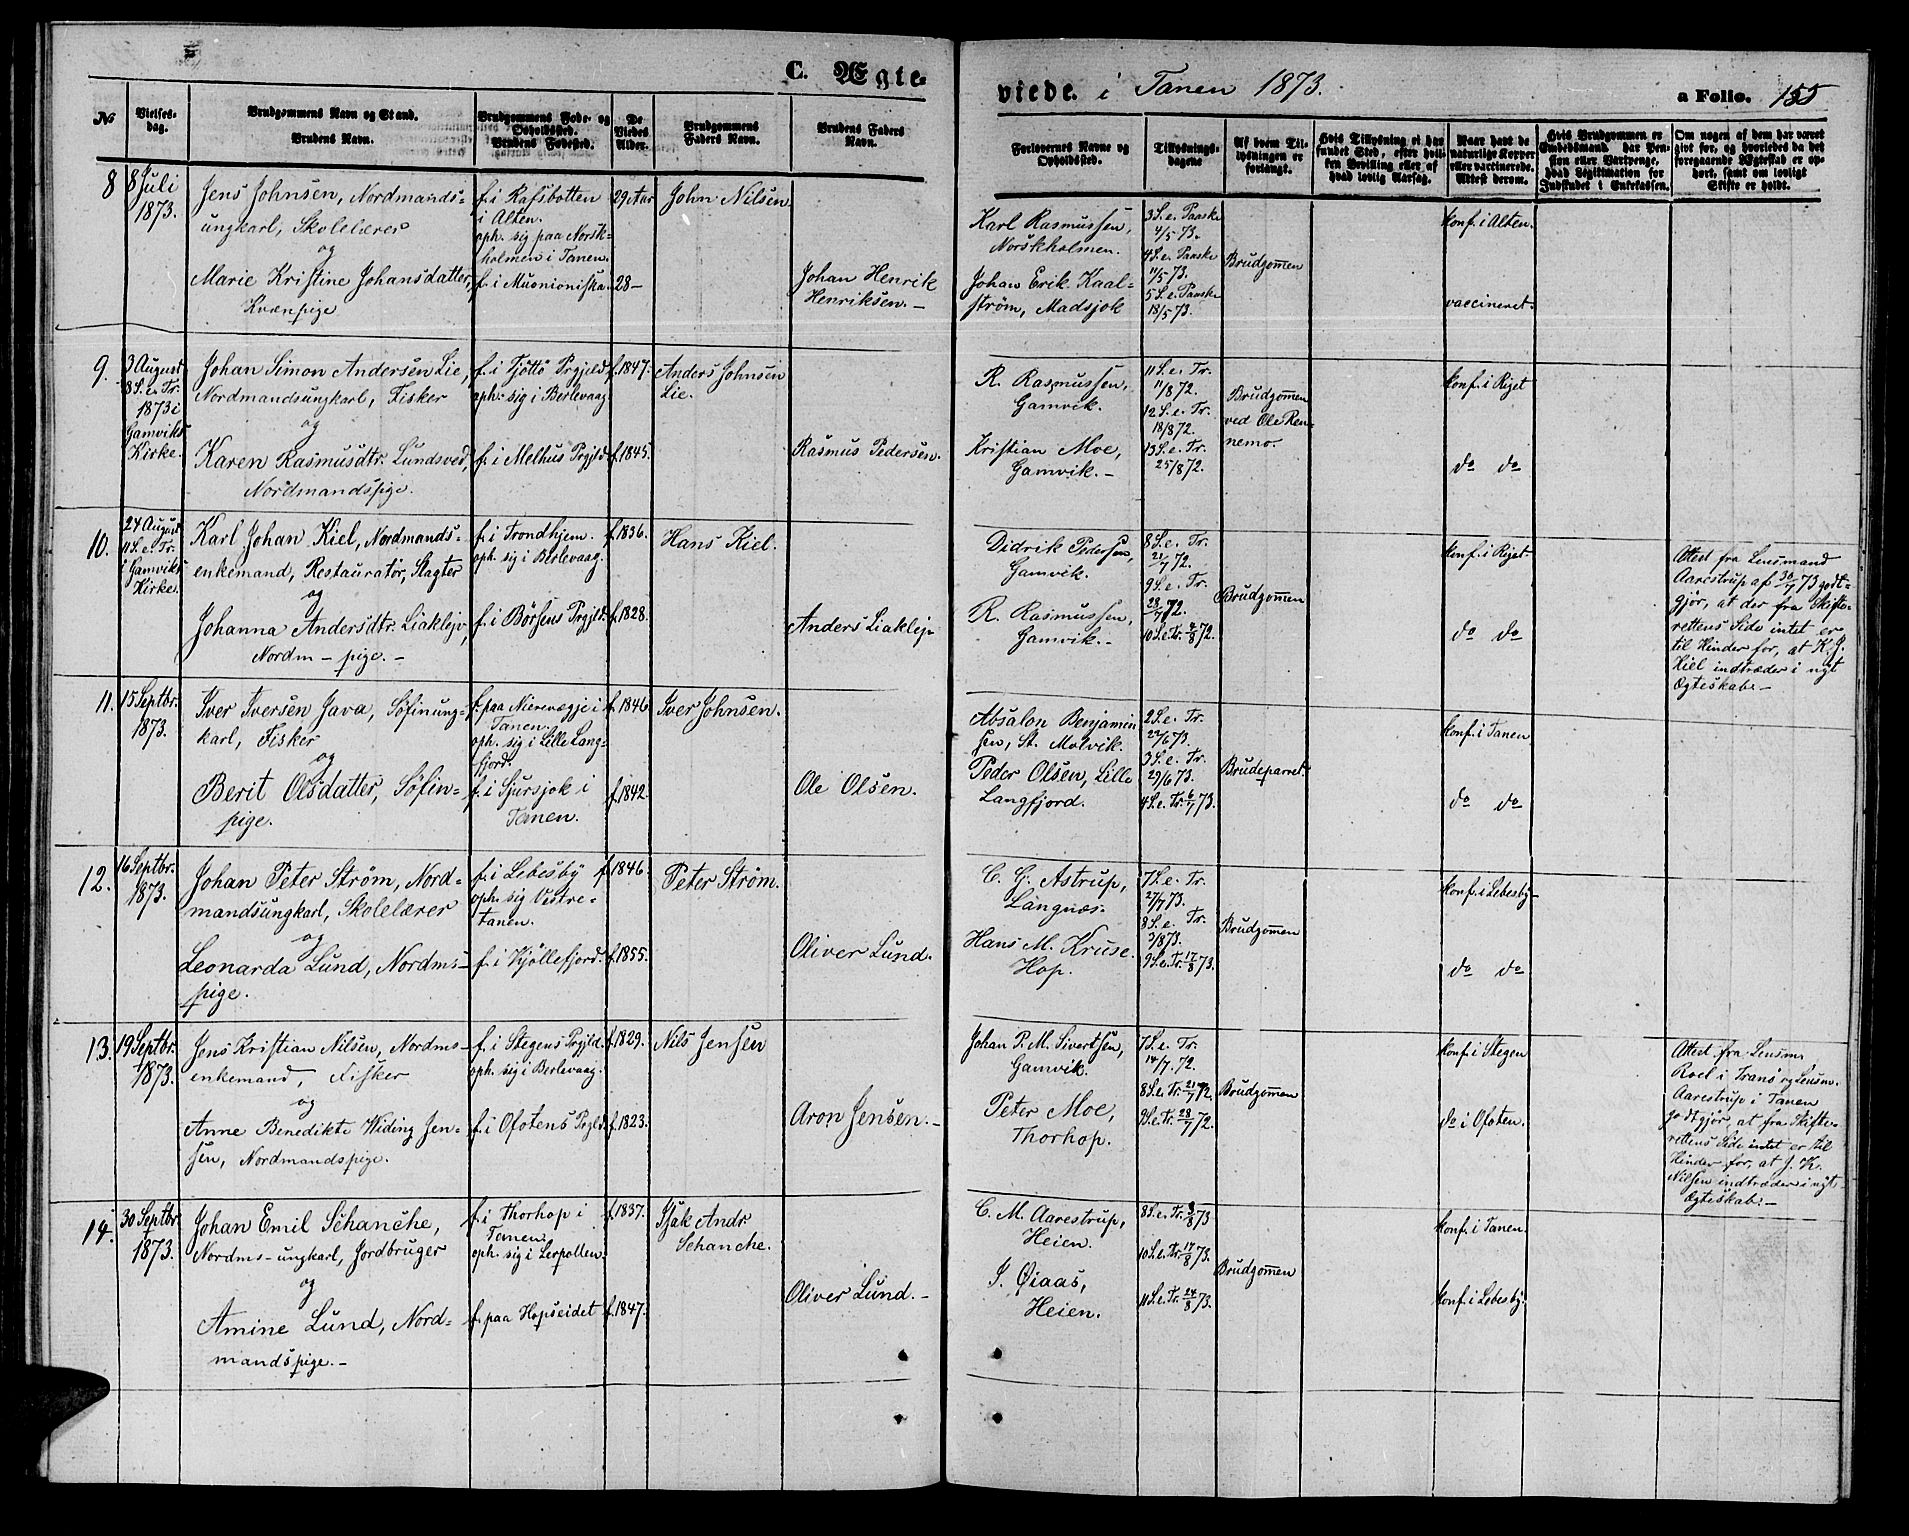 C. Ægte-
viede. i Tanen 1873.
a Folio. 155
No
Vielses-
dag.
Brudgommens Navn og Stand.
Brudens Navn.
Brudgommens Føde- og
Opholdssted.
Brudens Fødested.
De
Viedes
Alder.
Brudgommens
Faders Navn.
Brudens Faders
Navn.
Forlovernes Navne og
Opholdssted.
Tillysnings-
dagene
Af hvem Til-
lysningen er
forlangt.
Hvis Tillysning ei har
fundet Sted, efter hvil-
ken Bevilling eller af
hvad lovlig Aarsag.
Naar havt de
naturlige Kopper
eller vaccinerede.
Attest derom.
Hvis Brudgommen er
Embedsmand, har Pen-
sion eller Vartpenge,
hvad Legitimation for
Indskudet i Enkekassen.
Om nogen af dem har været
givt før, og hvorledes da det
foregaaende Ægteskab er op-
hørt, samt om lovligt
Skifte er holdt.
8
8 Juli
1873.
Jens Johnsen, Nordmands-
ungkarl, Skolelærer
og
Marie Kristine Johansdatter,
Kvænpige
f. i Rafsbotten
i Alten.
oph. sig paa Norsk-
holmen i Tanen.
f. i Muonioniska.
29 Aar
28 —
John Nilsen
Johan Henrik
Henriksen. —
Karl Rasmussen,
Norskholmen.
Johan Erik Kaal-
ström, Madsjok
3 S. e. Paaske
4/5 73.
4 S. e. Paaske
11/5 73.
5 S. e. Paaske
18/5 73.
Brudgom̅en
konf. i Alten.
vaccineret.
9.
3 August
8 S. e. Tr.
1873 i
Gamviks
Kirke.
Johan Simon Andersen Lie,
Nordmandsungkarl, Fisker
og
Karen Rasmusdtr. Lundsved,
Nordmandspige.
f. i Tjöttö Prgjeld
oph. sig i Berlevaag
f. i Melhus Prgjld
f. 1847.
f. 1845.
Anders Johnsen
Lie.
Rasmus Pedersen.
R. Rasmussen,
Gamvik.
Kristian Moe,
Gamvik. —
11 S. e. Tr.
11/8 72.
12 S. e. Tr.
18/8 72.
13 S. e. Tr.
25/8 72.
Brudgom̅en
ved Ole Ren-
nemo.
konf. i Riget
do do
10.
24 August
11 S. e. Tr.
i Gamviks
Kirke.
Karl Johan Kiel, Nordmands-
enkemand, Restauratør, Slagter
og
Johanna Andersdtr. Liaklejv,
Nordm — pige. —
f. i Trondhjem.
oph. sig i Berlevaag.
f. i Börsens Prgjld.
f. 1836.
f. 1828.
Hans Kiel.
Anders Liaklejv
Didrik Pedersen,
Gamvik.
R. Rasmussen,
Gamvik. —
8 S. e. Tr.
21/7 72.
9 S. e. Tr.
28/7 72.
10 S. e. Tr. 4/8 72.
Brudgom̅en
konf. i Riget
do do
Attest fra Lensmand
Aarestrup af 30/7 73 godt-
gjör, at der fra Skifte-
rettens Side intet er
til Hinder for, at K. J.
Kiel indtræder i nyt
Ægteskab. —
11.
15 Septbr.
1873.
Iver Iversen Java, Söfinung-
karl, Fisker
og
Berit Olsdatter, Söfin-
pige.
f. paa Nierevægje i
Tanen.
oph. sig i Lille Lang-
fjord.
f. i Sjursjok i
Tanen.
f. 1846
f. 1842.
Iver Johnsen.
Ole Olsen.
Absalon Benjamin
sen, St. Molvik.
Peder Olsen, Lille
Langfjord.
2 S. e. Tr.
22/6 73.
3 S. e. Tr.
29/6 73.
4 S. e. Tr. 6/7 73.
Brudeparret.
konf. i Tanen
do do
12.
16 Septbr.
1873.
Johan Peter Ström, Nord-
mandsungkarl, Skolelærer
og
Leonarda Lund, Nordms-
pige.
f. i Lebesby
oph. sig Vestre-
tanen.
f. i Kjöllefjord.
f. 1846.
f. 1855.
Peter Ström.
Oliver Lund.
C. G. Astrup,
Langnæs.
Hans M. Kruse.
Hop.
7 S. e. Tr.
27/7 73.
8 S. e. Tr.
3/8 73.
9 S. e. Tr. 17/8 73.
Brudgom̅en
konf. i Lebesby —
do do
13.
19 Septbr.
1873.
Jens Kristian Nilsen, Nordms-
enkemand, Fisker
og
Anne Benedikte Widing Jen-
sen, Nordmandspige.
f. i Stegens Prgjld.
oph. sig i Berlevaag.
f. i Ofotens Prgjld
f. 1829.
f. 1823.
Nils Jensen
Aron Jensen. —
Johan P. M. Sivertsen,
Gamvik.
Peter Moe,
Thorhop.
7 S. e. Tr.
14/7. 72.
8 S. e. Tr. 21/7 72.
9 S. e. Tr. 28/7 72.
Brudgom̅en
konf. i Stegen
do i Ofoten.
Attest fra Lensm.
Roel i Tranö og Lensm.
Aarestrup i Tanen
godtgjör, at fra Skifte-
rettens Side intet er til
Hinder for, at J. K.
Nilsen indtræder i nyt
Ægteskab. —
14.
30 Septbr.
1873.
Johan Emil Schanche,
Nordms-ungkarl, Jordbruger
og
Amine Lund, Nord-
mandspige. —
f. i Thorhop i
Tanen.
oph. sig i Lerpollen.
f. paa Hopseidet
f. 1837.
f. 1847.
Isak Andr.
Schanche.
Oliver Lund. —
C. M. Aarestrup,
Heien.
J. Øiaas,
Heien.
8 S. e. Tr. 3/8 73
10 S. e. Tr. 17/8 73.
11 S. e. Tr. 24/8 73.
Brudgom̅en
konf. i Tanen.
konf. i Lebesby.